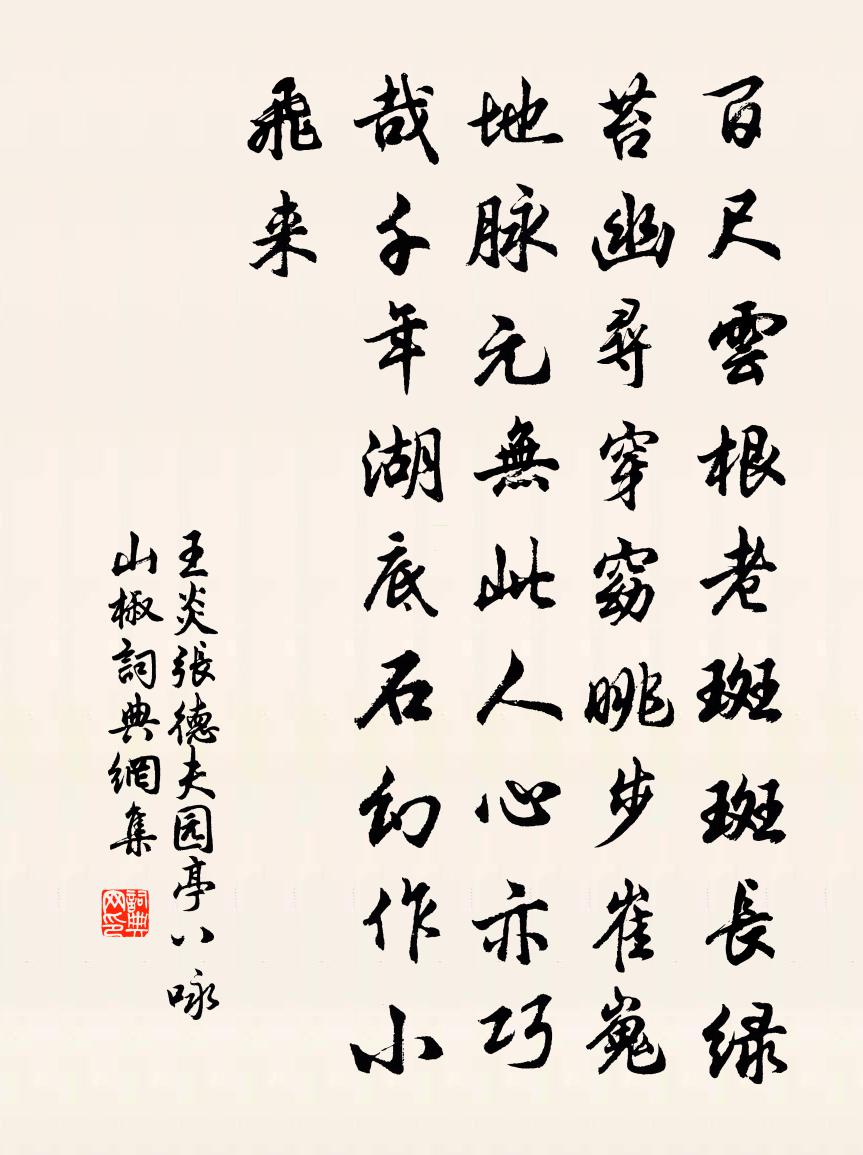 百尺雲根老斑斑長緑
苔幽尋穿窈眺步崔嵬
地脉元無此人心亦巧
哉千年湖底石幻作小
飛来
王炎張德夫园亭八咏
山椒詞典網集
詞典网印